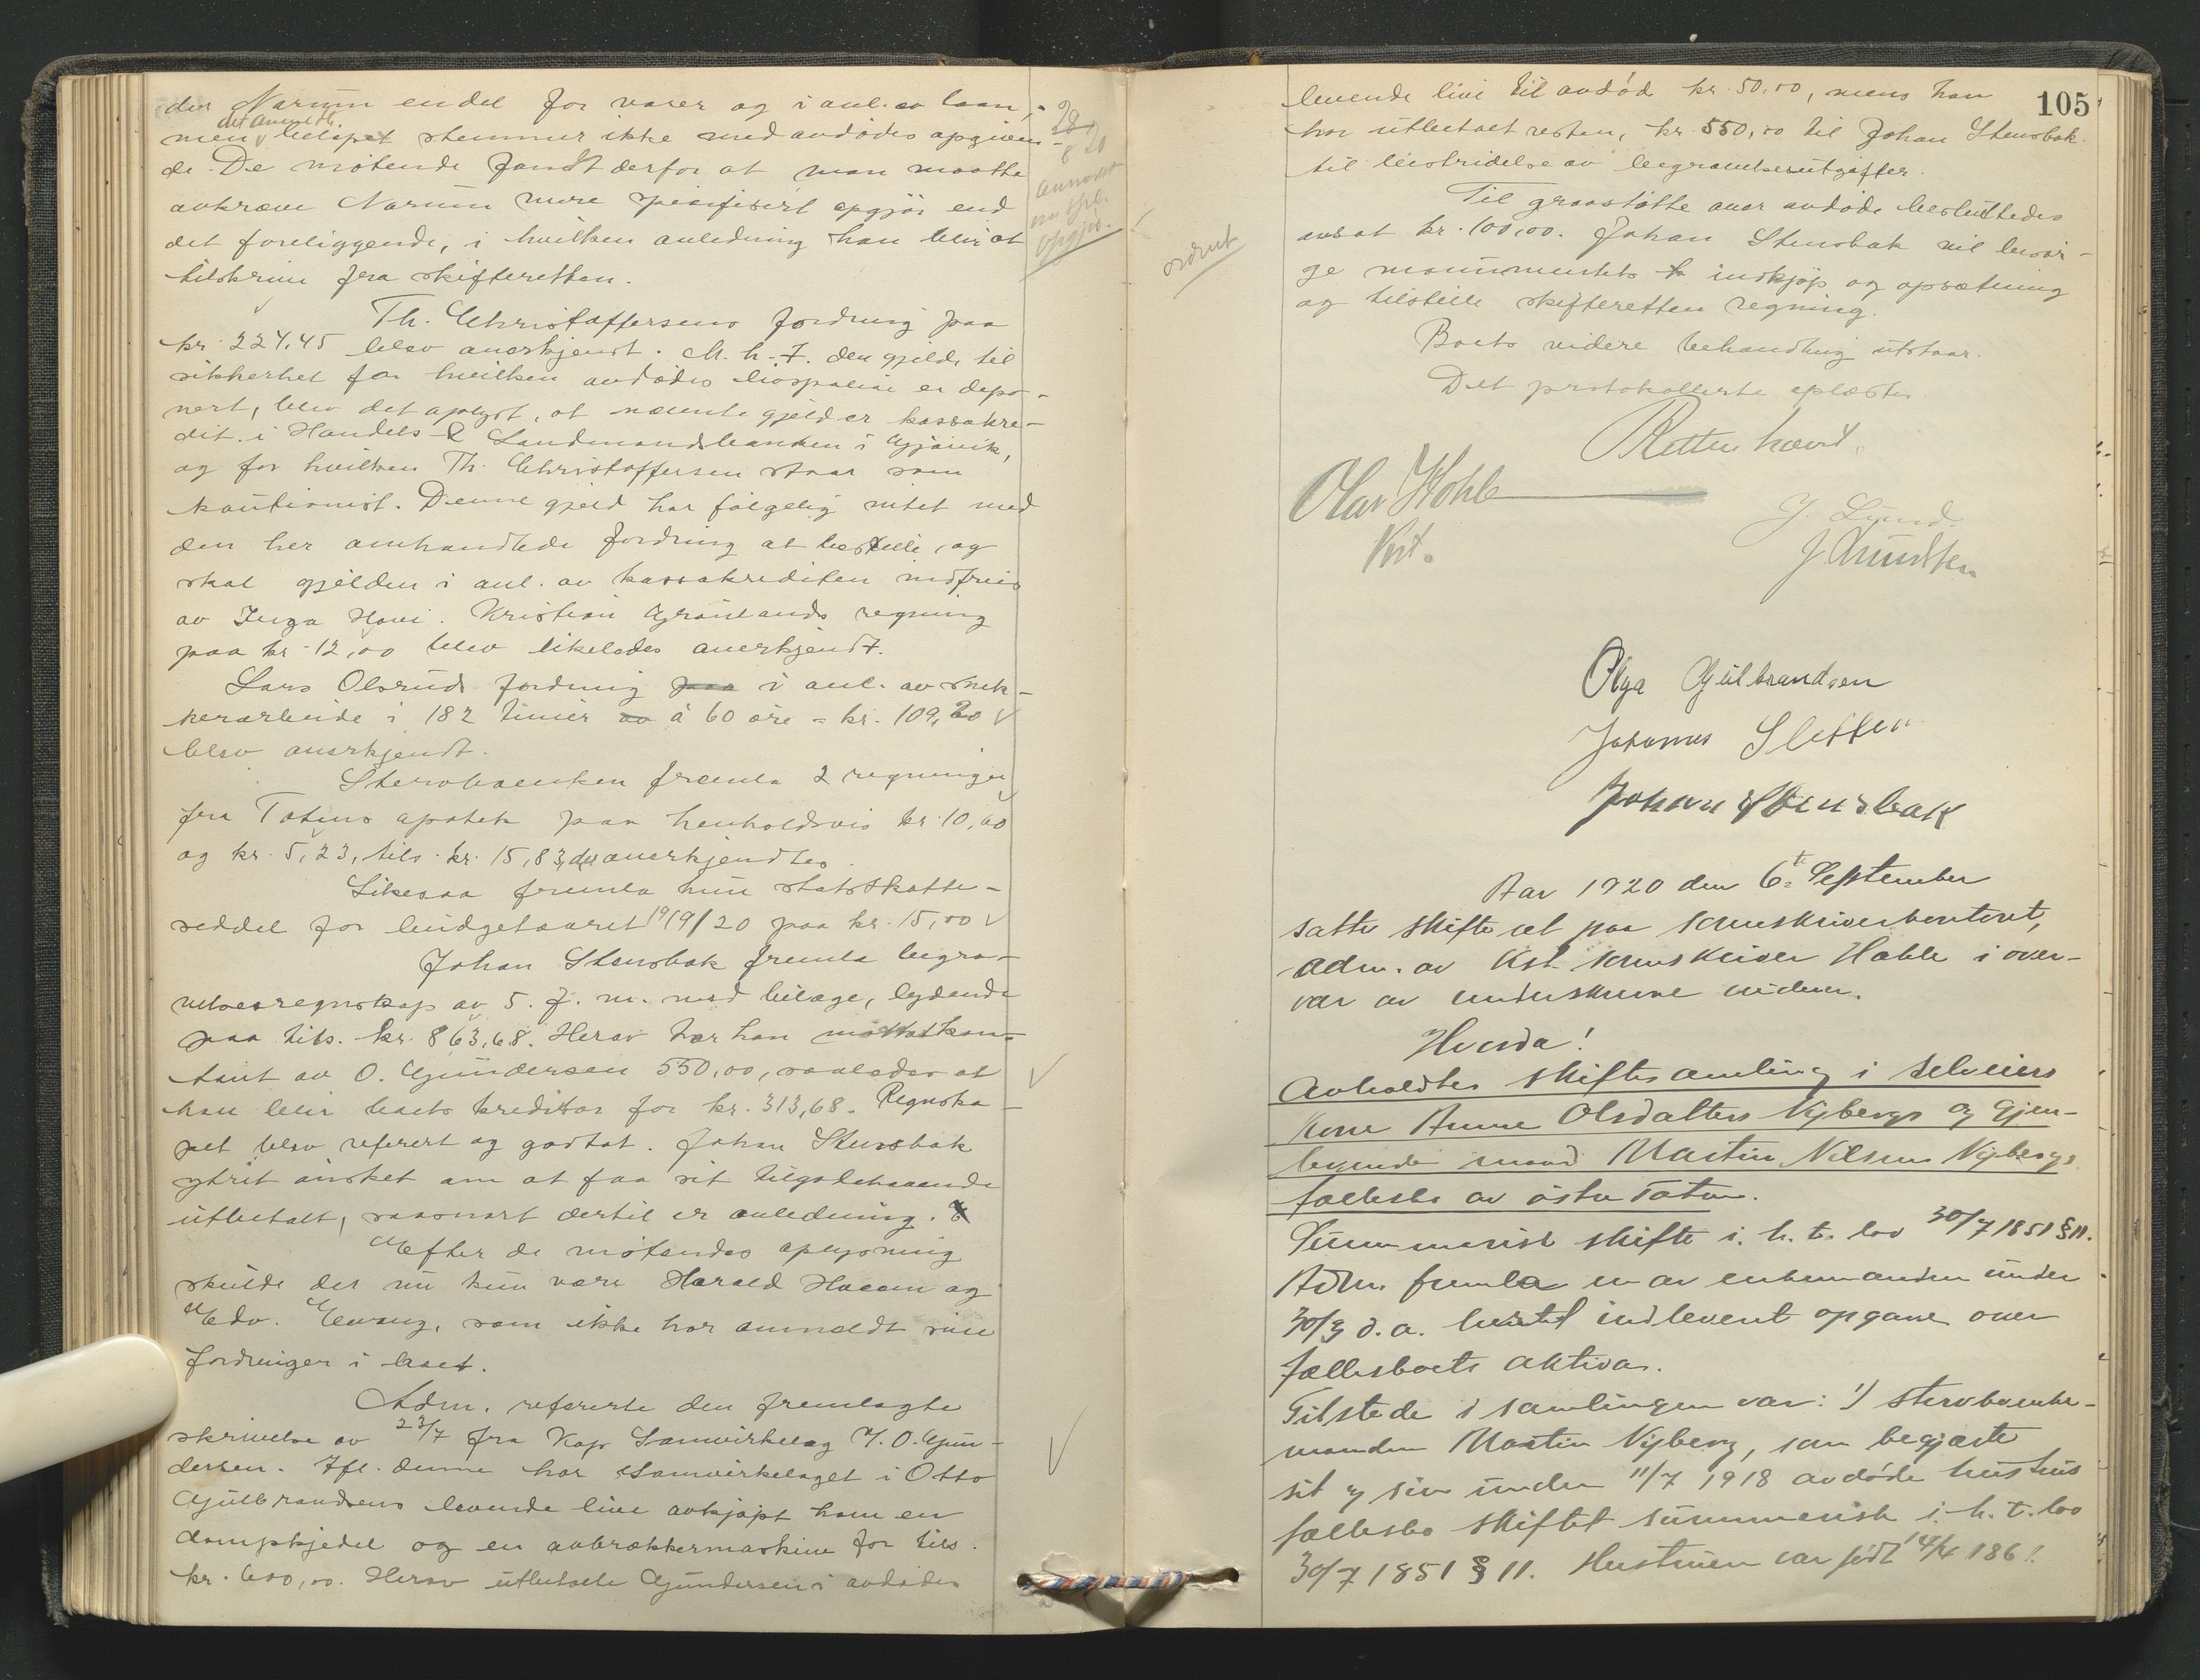 der Narum endel for varer og i anl. av laan,
det anmeldte
men beløpet stemmer ikke med avdødes opgiven-
de. De møtende fandt derfor at man maatte
avkræve Narum mere spesifisert opgjør end
det foreliggende, i hvilken anledning han blir at
tilskrive fra skifteretten.
Th. Christoffersens fordring paa
kr. 224.45 blev anerkjendt. M. h. t. den gjeld, til
sikkerhet for hvilken avdødes livspolise er depo-
nert, blev det oplyst, at nævnte gjeld er kassakre-
dit i Handels & Landmandsbanken i Gjøvik,
og for hvilken Th. Christoffersen staar som
kautionist. Denne gjeld har følgelig intet med
den her omhandlede fordring at bestille, og
skal gjelden i anl. av kassakrediten indfries
av Inga Hovi. Kristian Grønlands regning
paa kr. 12,00 blev likeledes anerkjendt.
Lars Olsruds fordring paa i anl. av snek-
kerarbeide i 182 timer av à 60 øre = kr. 109,20
blev anerkjendt.
Stervboenken fremla 2 regninger
fra Totens apotek paa henholdsvis kr. 10,60
og kr. 5,23, tils. kr. 15,83, der anerkjendtes.
Likesaa fremla hun statsskatte-
seddel for budgetaaret 1919/20 paa kr. 15,00
Johan Stensbak fremla begra-
velsesregnskap av 5. f. m. med bilage, lydende
paa tils. kr. 863,68. Herav har han mottat kon-
tant av O. Gundersen 550,00, saaledes at
han blir boets kreditor for kr. 313,68. Regnska-
pet blev referert og godtat. Johan Stensbak
ytret ønsket om at faa sit tilgodehavende
utbetalt, saasnart dertil er anledning.
Efter de møtendes oplysning
skulde det nu kun være Harald Hoem og
Edv. Evang, som ikke har anmeldt sine
fordringer i boet.
Adm. refererte den fremlagte
skrivelse av 23/7 fra Kap Samvirkelag v. O. Gun-
dersen. Ifl. denne har Samvirkelaget i Otto
Gulbrandsens levende live avkjøpt ham en
dampkjedel og en avbrækkermaskine for tils.
kr. 600,00. Herav utbetalte Gundersen i avdødes
28/8 20
anmodet
om spes.
opgjør.
ordnet
105
levende live til avdød kr. 50,00, mens han
har utbetalt resten, kr. 550,00 til Johan Stensbak
til bestridelse av begravelsesutgifter.
Til gravstøtte over avdøde besluttedes
avsat kr. 100,00. Johan Stensbak vil besør-
ge monumentets indkjøp og opsætning
og tilstille skifteretten regning.
Boets videre behandling utstaar.
Det protokollerte oplæstes.
Retten hævet.
Olav Hohle
Kst.
J. Lund.
J. Knudsen
Olga Gulbrandsen
Johannes Sletten
Johan Stensbak
Aar 1920 den 6te September
sattes skifteret paa sorenskriverkontoret,
adm. av kst. sorenskriver Hohle i over-
vær av underskrevne vidner.
Hvorda!
Avholdtes skiftesamling i selveiers
kone Anne Olsdatters Nyberg og gjen-
levende mand Martin Nilsen Nybergs
fællesbo av østre Toten.
Summarisk skifte i. h. t. lov 30/7 1851 § 11.
Adm. fremla en av enkemanden under
30/3 d. a. hertil indlevert opgave over
fællesboets aktiva.
Tilstede i samlingen var: 1) stervboenke-
manden Martin Nyberg, som begjærte
sit og sin under 11/7 1918 avdøde hustrus
fællesbo skiftet summarisk i. h. t. lov
30/7 1851 § 11. Hustruen var født 14/4 1861.